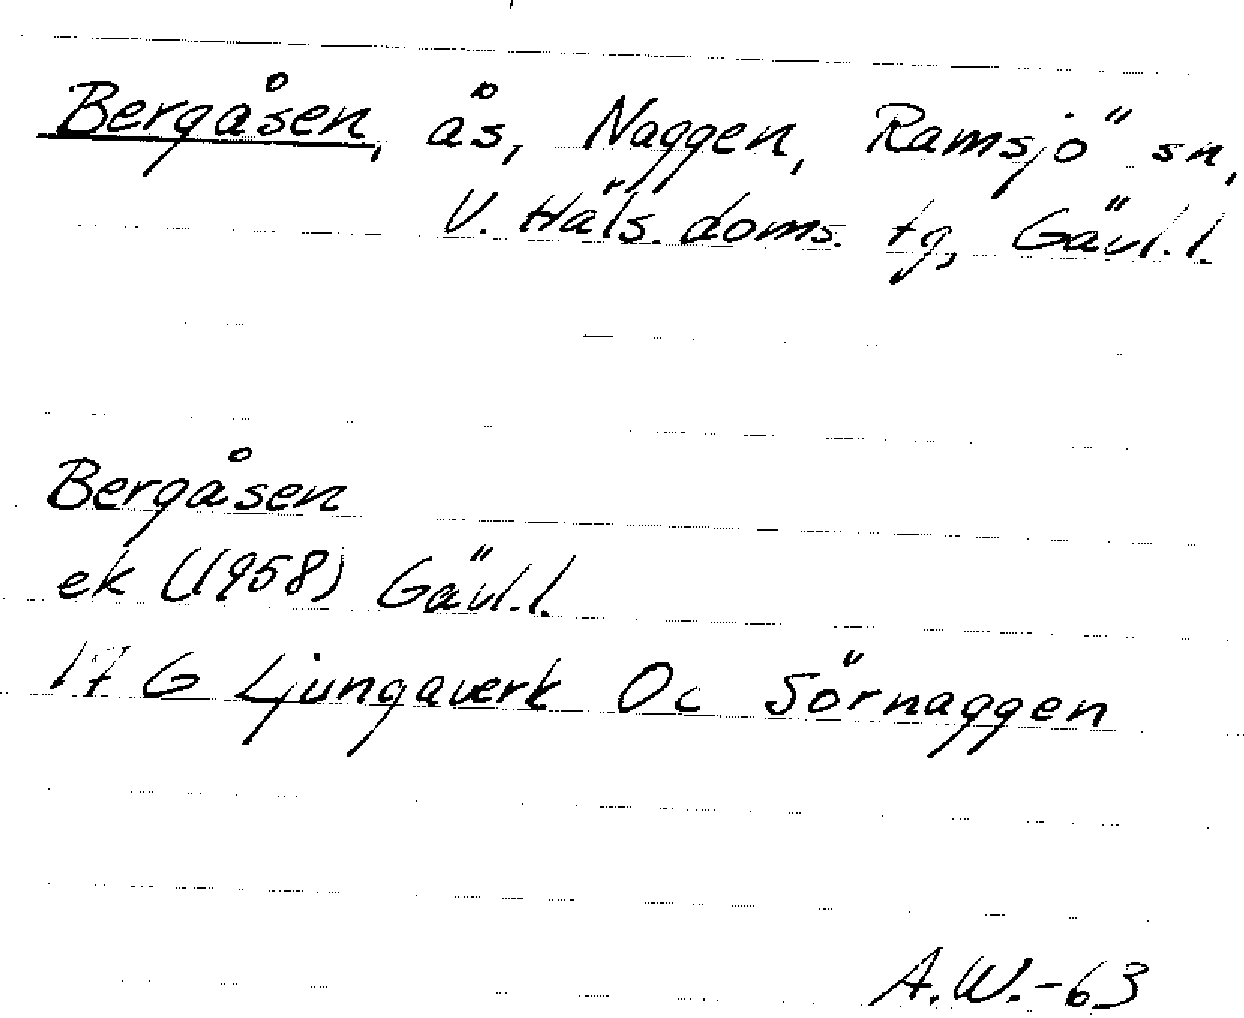 Bergåsen, ås, Naggen, Ramsjö sn,
V. Häls. doms. tg, Gävl.l.
Bergåsen
ek (1958) Gävl.l.
17 G Ljungaverk Oc Sörnaggen
A.W.-63